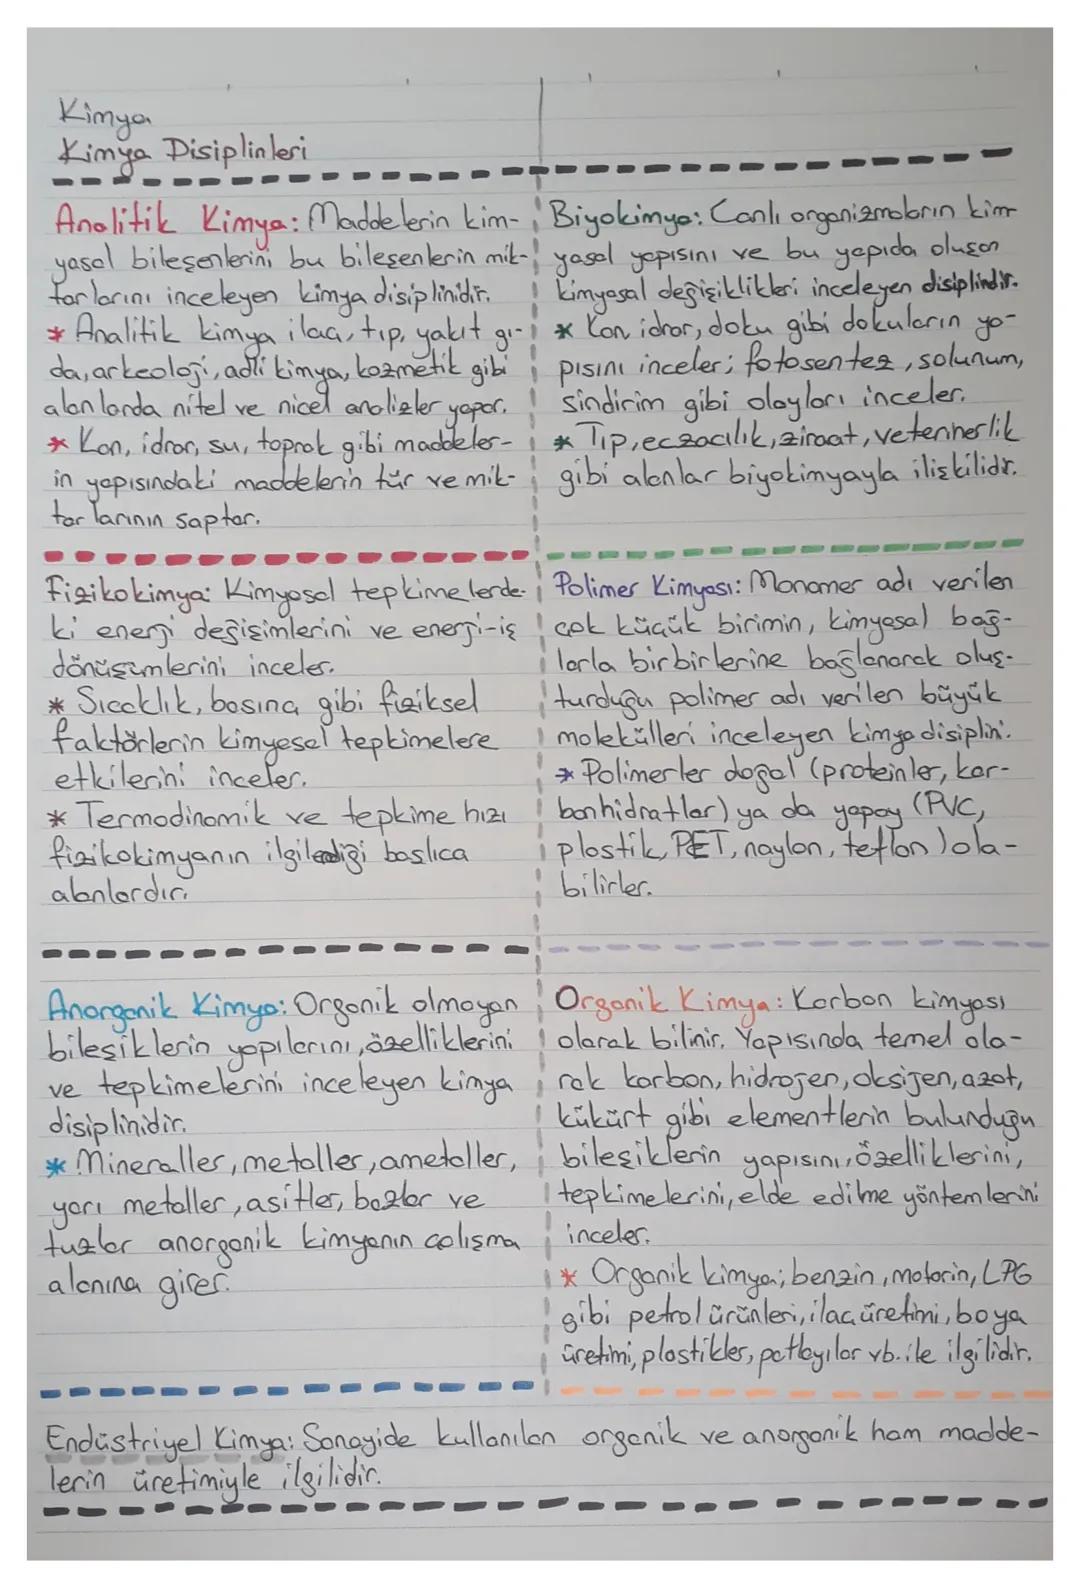 Kimya
Kimya Disiplinleri
Analitik Kimya: Maddelerin kim-
yasal bileşenlerini bu bileşenlerin mik-
tarlarını inceleyen kimya disiplinidir.
* Analitik kimya ilaç, tıp, yakıt gı-
da, arkeoloji, adli kimya, kozmetik gibi
alanlarda nitel ve nicel analizler yapar.
* Kan, idrar, su, toprak gibi maddeler-
in yapısındaki maddelerin tür ve mik-
tarlarının saptar.
Biyokimya: Canlı organizmaların kim-
yasal yapısını ve bu yapıda oluşan
kimyasal değişiklikleri inceleyen disiplindir.
* Kan, idrar, doku gibi dokuların ya-
pısını inceler; fotosentez, solunum,
sindirim gibi olayları inceler.
* Tıp, eczacılık, ziraat, veterinerlik
gibi alanlar biyokimyayla ilişkilidir.
Fizikokimya: Kimyasal tepkimelerde-
ki enerji değişimlerini ve enerji-iş
dönüşümlerini inceler.
* Sıcaklık, basınç gibi fiziksel
faktörlerin kimyasal tepkimelere
etkilerini inceler.
* Termodinamik ve tepkime hızı
fizikokimyanın ilgilendiği başlıca
alanlardır.
Polimer Kimyası: Monomer adı verilen
çok küçük birimin, kimyasal bağ-
larla birbirlerine bağlanarak oluş-
turduğu polimer adı verilen büyük
molekülleri inceleyen kimya disiplini.
* Polimerler doğal (proteinler, kar-
bonhidratlar) ya da yapay (PVC,
plastik, PET, naylon, teflon) ola-
bilirler.
Anorganik Kimya: Organik olmayan
bileşiklerin yapılarını, özelliklerini
ve tepkimelerini inceleyen kimya
disiplinidir.
* Mineraller, metaller, ametaller,
yarı metaller, asitler, bazlar ve
tuzlar anorganik kimyanın çalışma
alanına girer.
Organik Kimya: Karbon kimyası
olarak bilinir. Yapısında temel ola-
rak karbon, hidrojen, oksijen, azot,
kükürt gibi elementlerin bulunduğu
bileşiklerin yapısını, özelliklerini,
tepkimelerini, elde edilme yöntemlerini
inceler.
* Organik kimya; benzin, motorin, LPG
gibi petrol ürünleri, ilaç üretimi, boya
üretimi, plastikler, patlayılar vb. ile ilgilidir.
Endüstriyel Kimya: Sanayide kullanılan organik ve anorganik ham madde-
lerin üretimiyle ilgilidir.